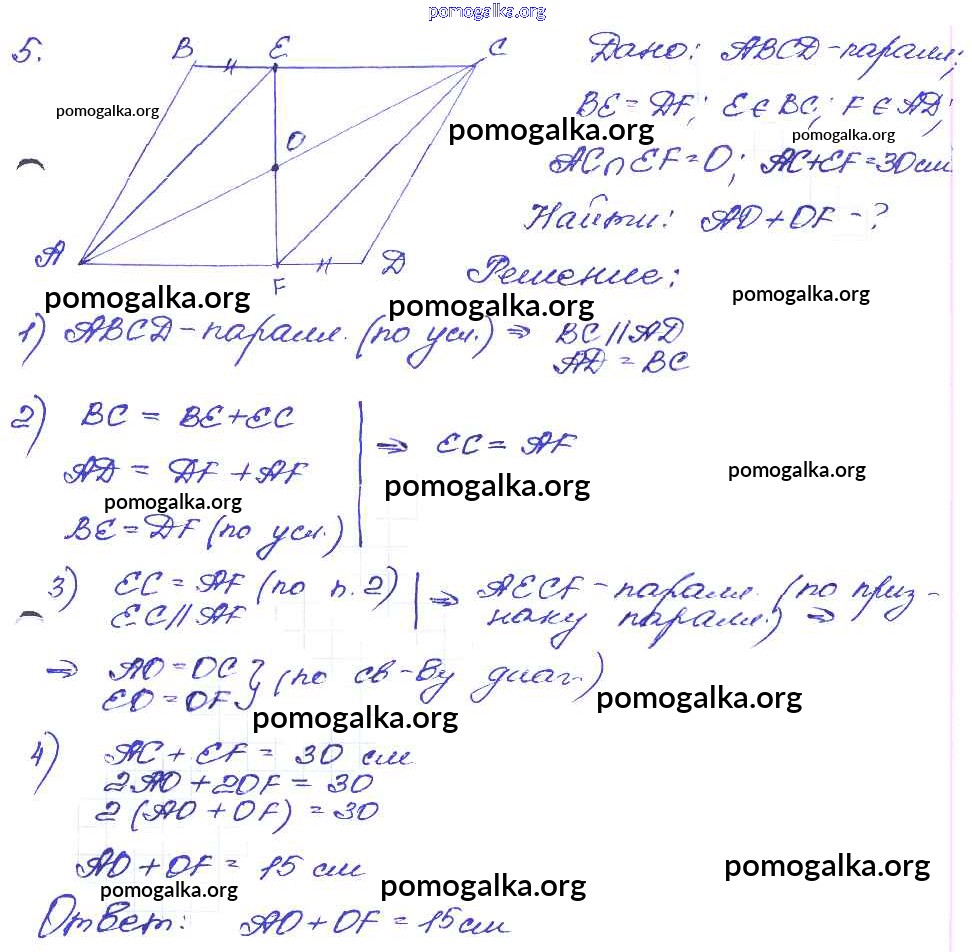 pomogalka.org
5.
B E C
O
A F D
Дано: ABCD-паралл;
BE = DF; E ∈ BC; F ∈ AD;
AC ∩ EF = O; AC+EF = 30 см
Найти: AO + OF - ?
Решение:
pomogalka.org
pomogalka.org
pomogalka.org
pomogalka.org
pomogalka.org
pomogalka.org
1) ABCD-паралл. (по усл.) ⇒ BC // AD
AD = BC
2) BC = BE+EC
AD = DF + AF ⇒ EC = AF
pomogalka.org
pomogalka.org
pomogalka.org
BE = DF (по усл.)
3) EC = AF (по п. 2) ⇒ AECF - паралл. (по приз-
EC // AF наку паралл.) ⇒
⇒ AO = OC } (по св-ву диаг.)
EO = OF
pomogalka.org
pomogalka.org
4) AC + EF = 30 см
2AO + 2OF = 30
2 (AO + OF) = 30
AO + OF = 15 см
pomogalka.org
pomogalka.org
pomogalka.org
Ответ: AO + OF = 15 см